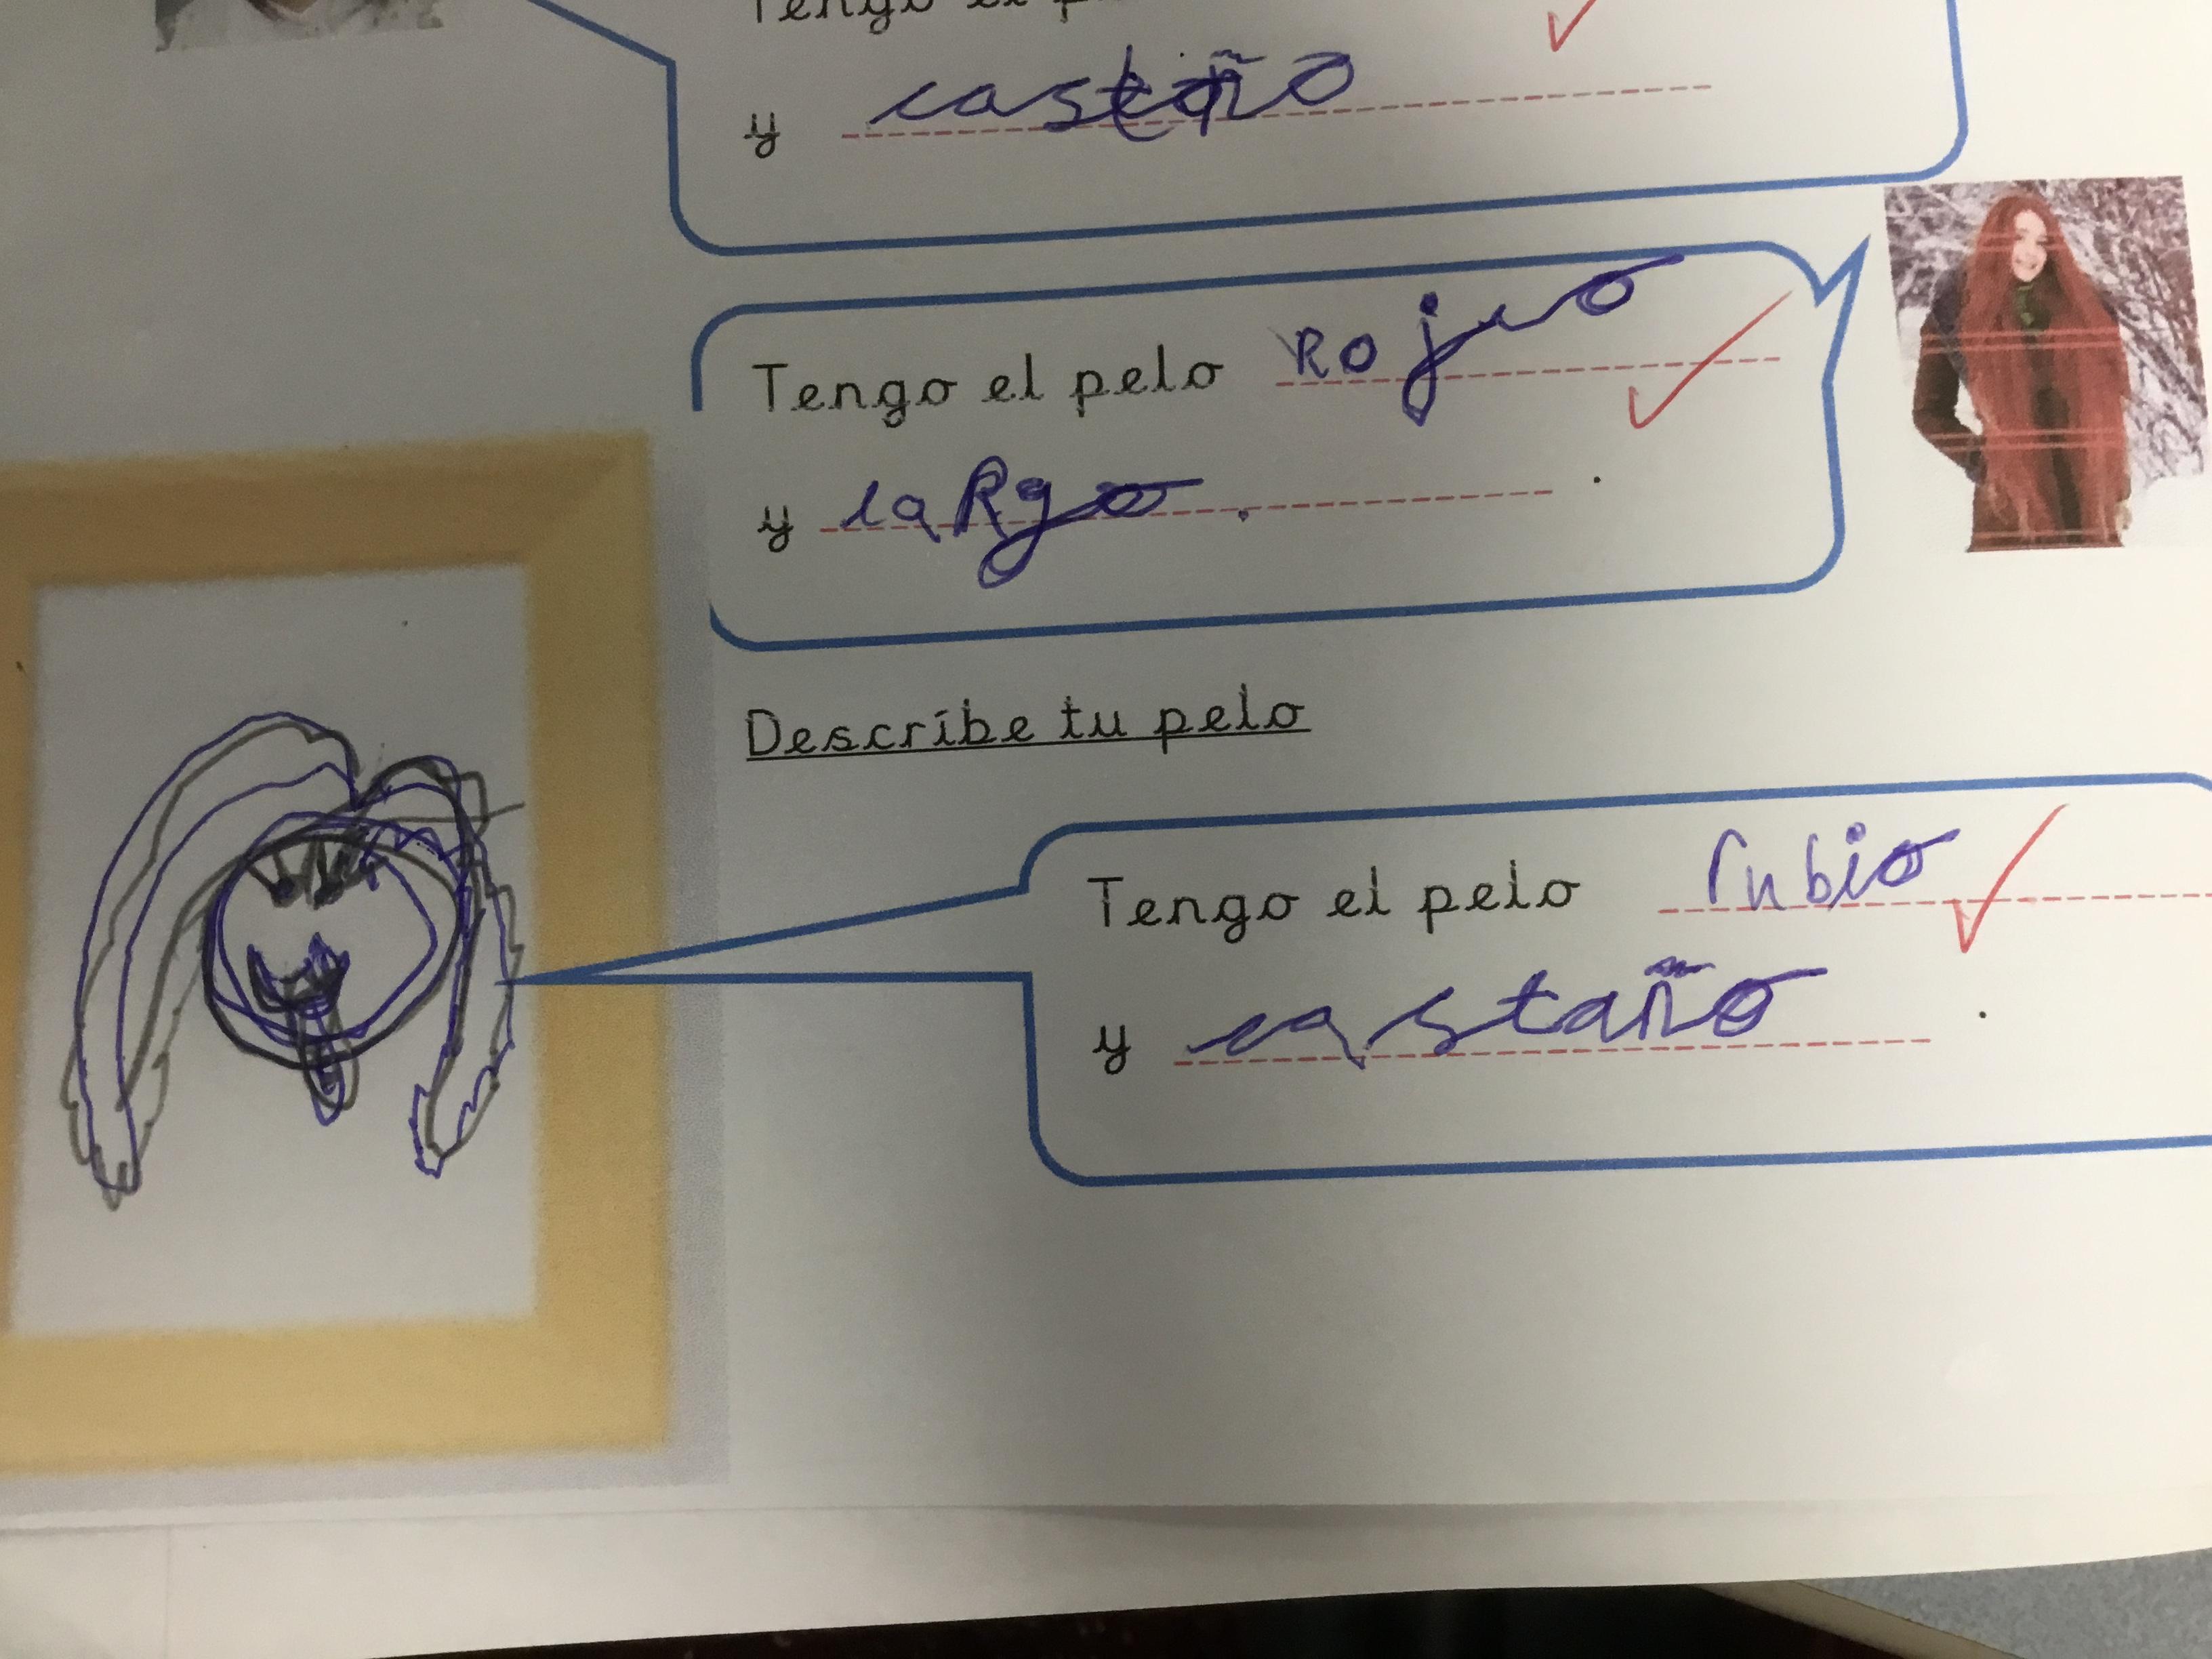 Tengo el
y castaño
Tengo el pelo Rojuo
y laRgo. .
Describe tu pelo
Tengo el pelo rubio
y castaño .